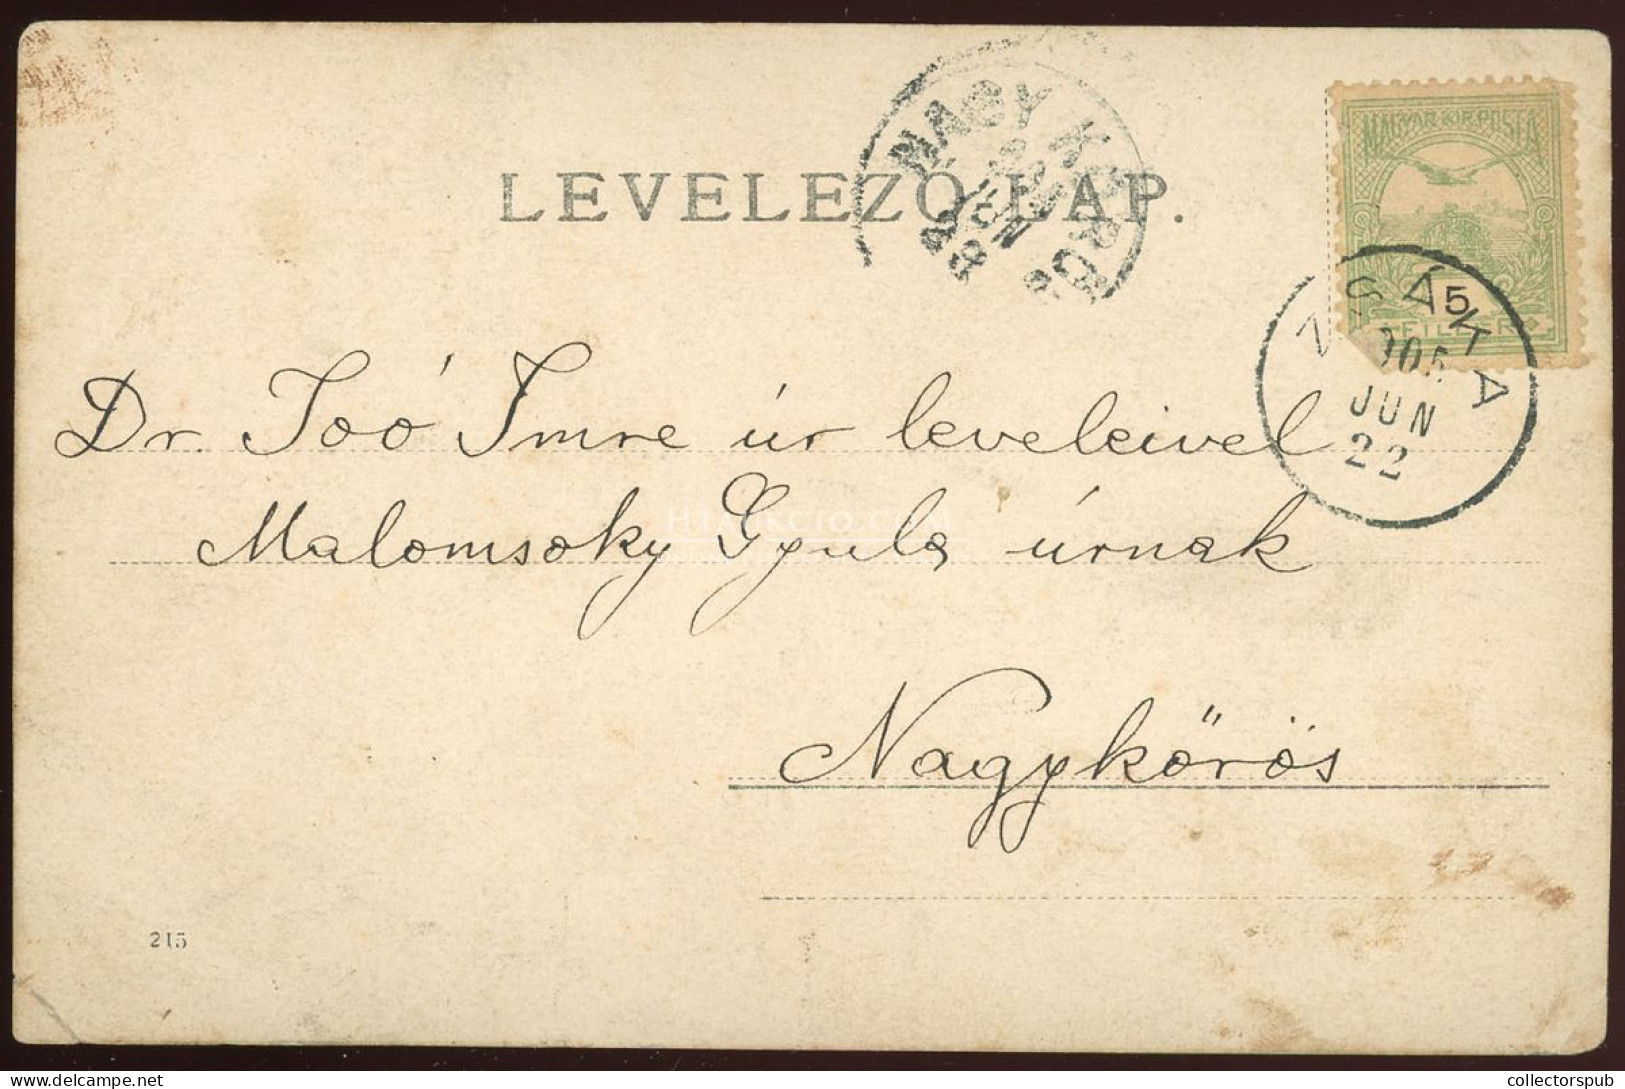 NAGY KŐRÖS
LEVELEZŐ-LAP.
MAGYAR KIR. POSTA
5
FILLÉR
ZSÁKA
905
JUN
22
Dr. Soó Imre úr leveleivel
Malomsoky Gyula úrnak
Nagykőrös
215
HTAUKCIO.COM
collectorspub